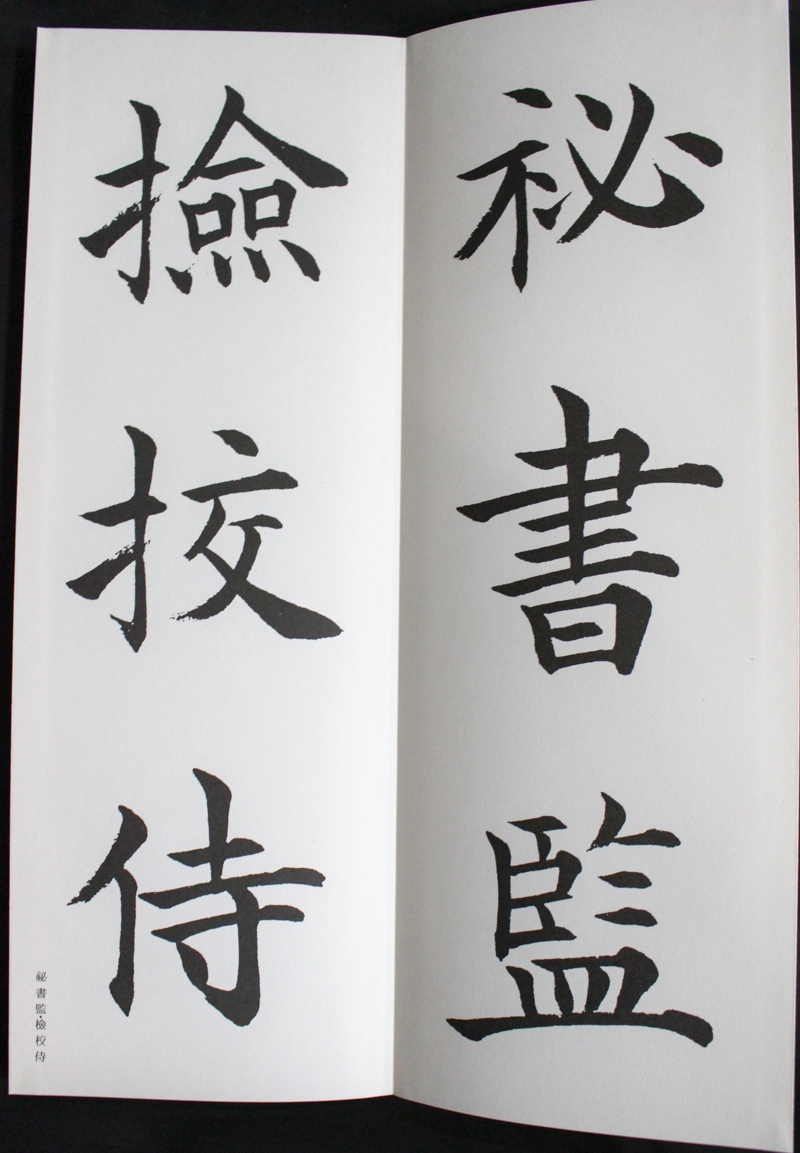 祕書監
撿挍侍
祕書監・檢校侍